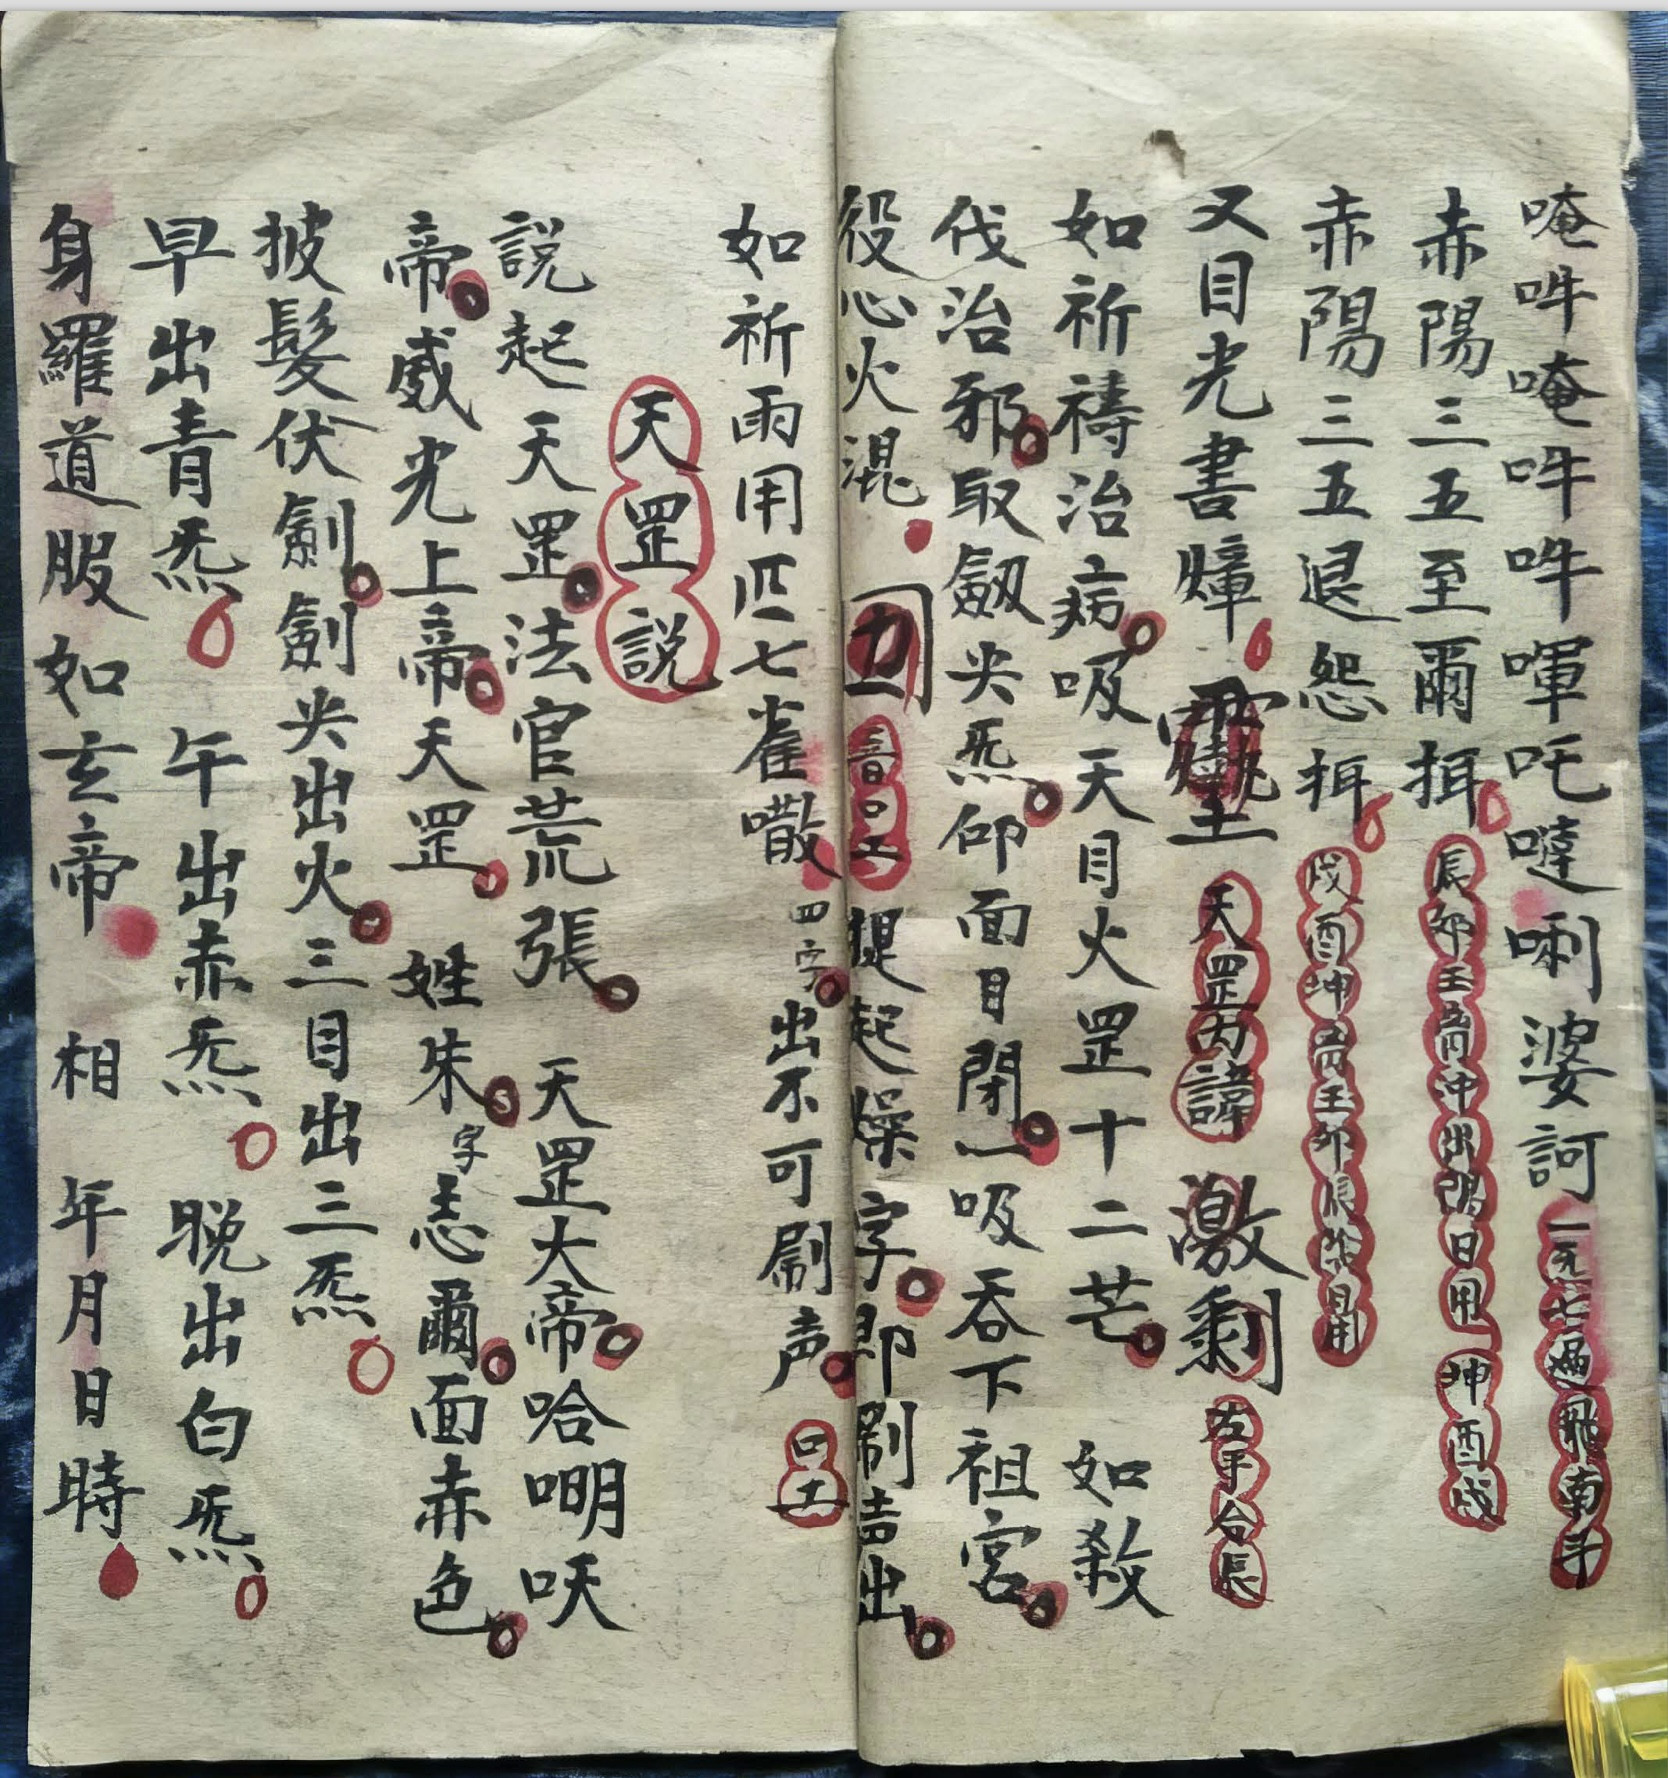 唵吽唵吽吽㖶吒噠唎婆訶一炁七遍飛南斗
赤陽三五至爾揖辰卯壬亥冲出陽日用坤酉戌
赤陽三五退怨揖戌酉坤亥壬卯辰陰日用
又目光書㷖天罡内諱激剩左手合辰
如祈禱治病吸天目火罡十二芒如殺
伐治邪取劔尖炁仰面目閉一吸吞下祖宮
役心火混音口工提起燥字即刷声出
如祈雨用匹七雀噉四字出不可刷声
天罡説
説起天罡法官荒張天罡大帝哈𠺕㕭
帝威光上帝天罡姓朱字志爾面赤色
披髮伏劍劍尖出火三目出三炁
早出青炁午出赤炁晚出白炁
身羅道服如玄帝相年月日時